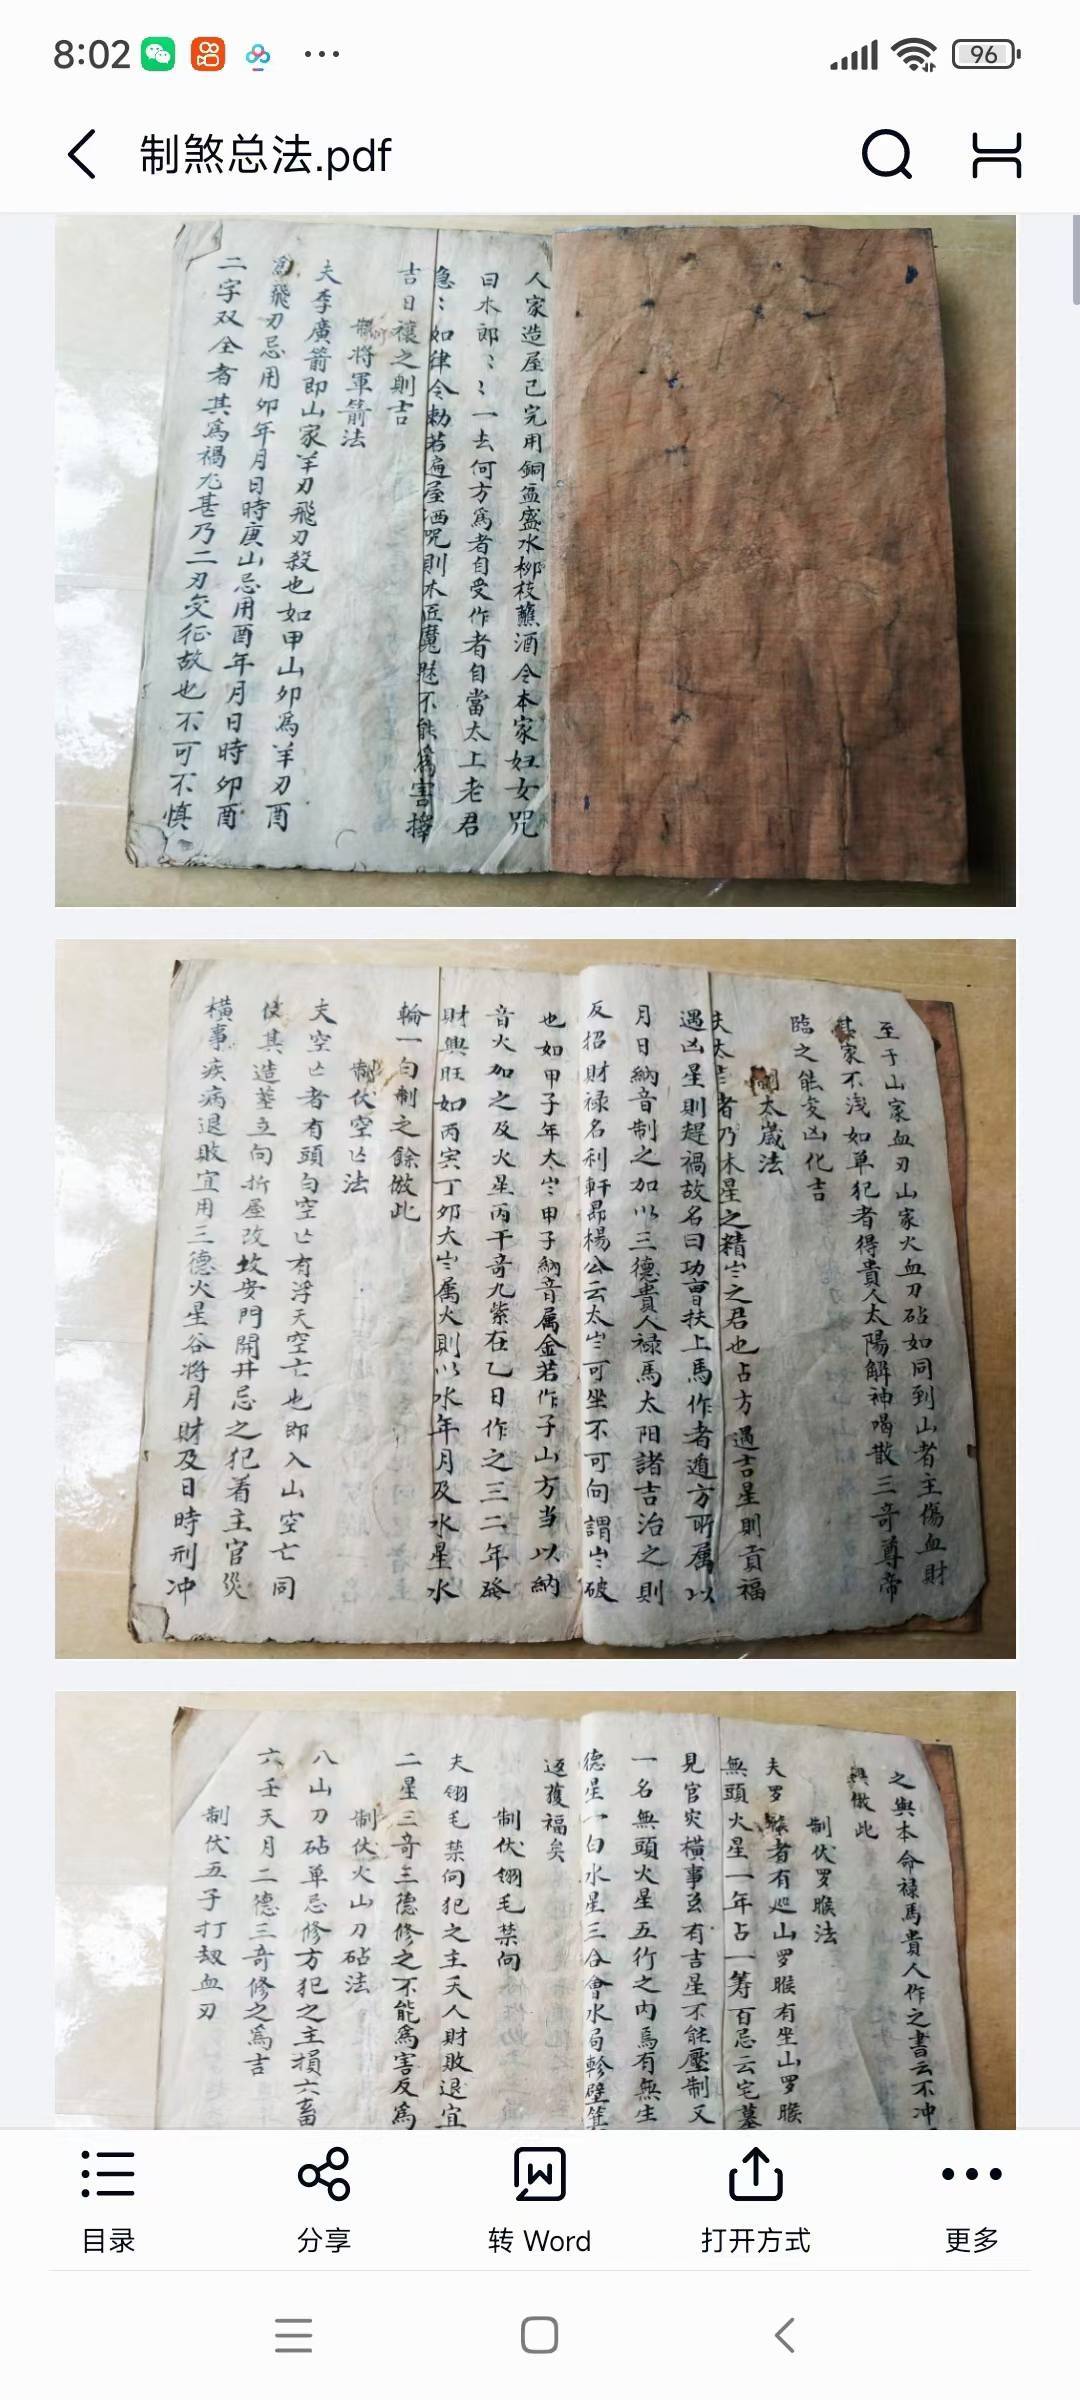 8:02
96
制煞总法.pdf
人家造屋已完用銅盆盛水柳枝蘸酒令本家妇女咒
曰木郎〻〻一去何方爲者自受作者自當太上老君
急〻如律令勅若遍屋洒咒則木匠魘魅不能爲害擇
吉日禳之則吉
制將軍箭法
夫李廣箭即山家羊刃飛刃殺也如甲山卯爲羊刃酉
爲飛刃忌用卯年月日時庚山忌用酉年月日時卯酉
二字双全者其爲禍尤甚乃二刃交征故也不可不慎
至于山家血刃山家火血刀砧如同到山者主傷血財
其家不浅如单犯者得貴人太陽解神喝散三奇尊帝
臨之能変凶化吉
制太歲法
夫太岁者乃木星之精岁之君也占方遇吉星則貢福
遇凶星則趕禍故名曰功曹扶上馬作者遁方所属以
月日納音制之加以三德貴人禄馬太阳諸吉治之則
反招財禄名利軒昂楊公云太岁可坐不可向謂岁破
也如甲子年太岁甲子納音属金若作子山方当以納
音火加之及火星丙干奇九紫在乙日作之三二年發
財興旺如丙寅丁卯太岁属火則以水年月及水星水
輪一白制之餘倣此
制伏空亡法
夫空亡者有頭白空亡有浮天空亡也即入山空亡同
伎其造葬立向折屋改坟安門開井忌之犯着主官災
横事疾病退敗宜用三德火星谷将月財及日時刑冲
之與本命禄馬貴人作之書云不冲
興倣此
制伏罗睺法
夫罗睺者有廵山罗睺有坐山罗睺
無頭火星一年占一筹百忌云宅墓
見官灾横事虽有吉星不能壓制又
一名無頭火星五行之内焉有無生
德星一白水星三合會水局軫壁箕
返獲福矣
制伏翎毛禁向
夫翎毛禁向犯之主天人財敗退宜
二星三奇三德修之不能爲害反爲
制伏火山刀砧法
八山刀砧单忌修方犯之主損六畜
六壬天月二德三奇修之爲吉
制伏五子打劫血刃
目录
分享
转 Word
打开方式
更多